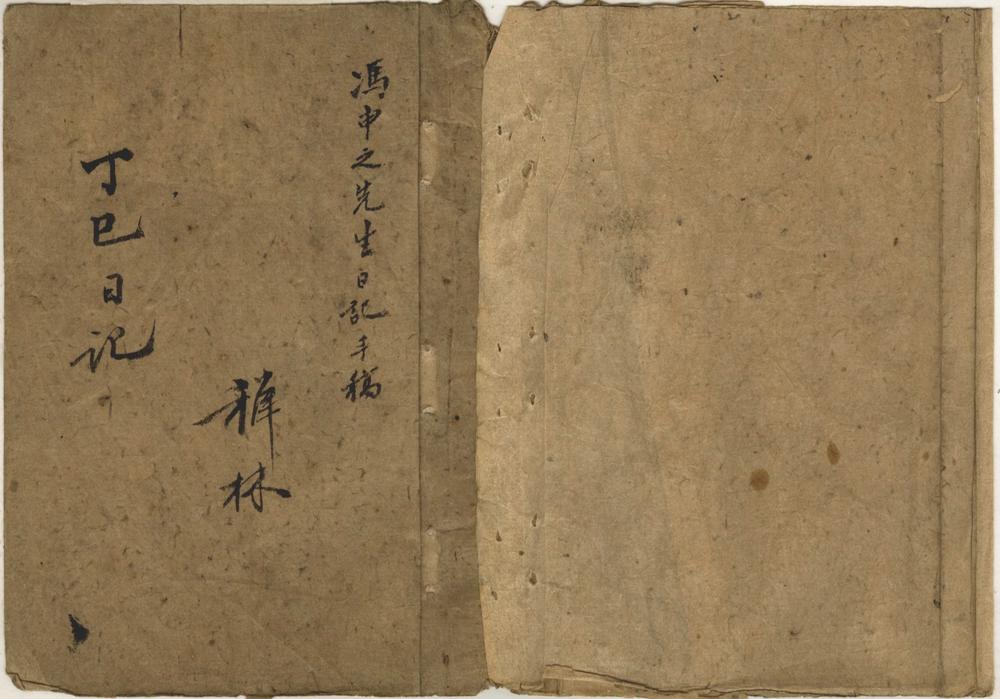 馮申之先生日記手稿
林
丁巳日记